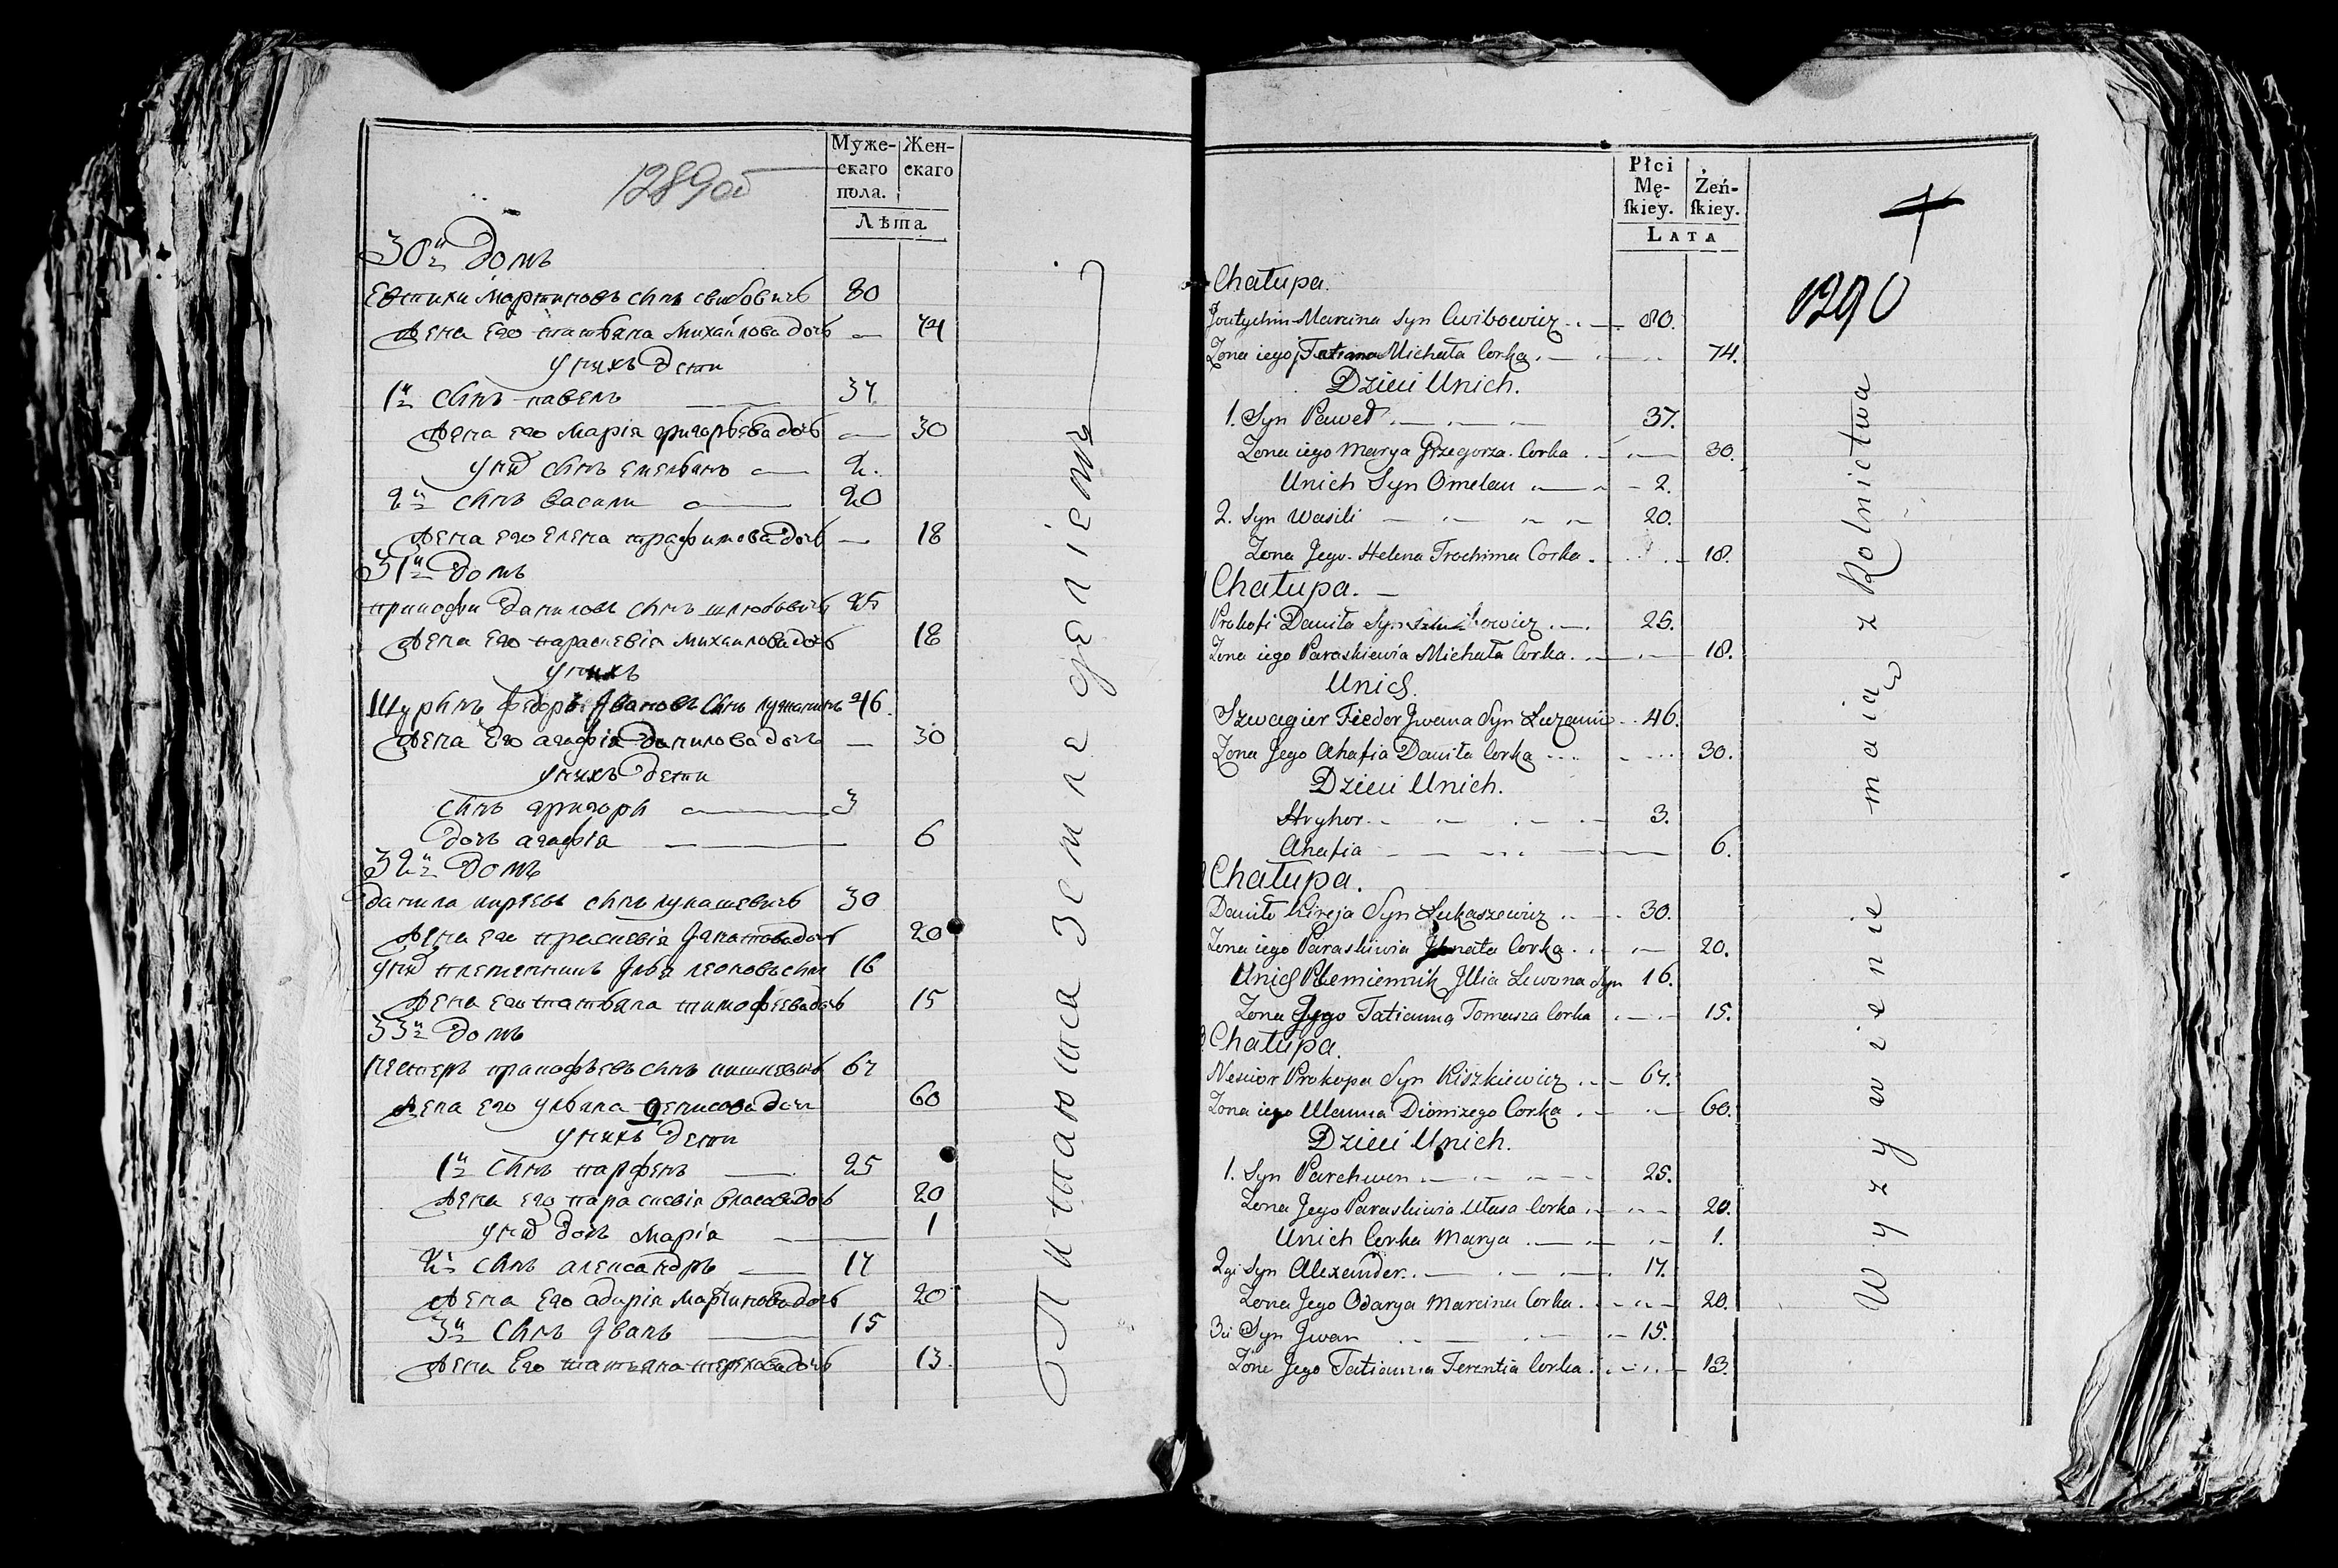 1289 об
Муже-
скаго
пола.
Жен-
скаго
Лѣта
30й Домъ
Евтихи Мартиновъ сынъ свибовичъ 80
Жена Его татьяна Михайлова дочь — 74
У нихъ Дети
1й сынъ павелъ 37
Жена его Марія григорьева дочь — 30
у ниx сынъ емельянъ — 2.
2й сынъ васили — 20
Жена его Елена трафимова дочь — 18
31й Домъ
прикофи Данилов сынъ 25
Жена Его параскевія михаилова дочь 18
У нихъ
Шуринъ федоръ Ивановъ сынъ 46
Жена Его агафія Данилова дочь — 30
у нихъ Дети
сынъ григори — 3
дочь агафія 6
32й Домъ
данила киреевъ сынъ лукашевичъ 30
Жена Его праскевія Игнатова дочь 20
племенникъ Илья леоновъ сын 16
Жена его татьяна тимофеева дочь 15
33й Домъ
нестеръ пракофьевъ сынъ кишкевичъ 67
Жена Его ульяна денисова дочь 60
У нихъ Дети
1й сынъ парфенъ 25
Жена Его параскевія власова дочь 20
дочь Марія 1
2й сынъ александръ 17
Жена Его одарія Мартинова дочь 20
3й сынъ Иванъ 15
Жена Его татьяна терехова дочь 13.
Питаются Землѣделіемъ
Płci
Mę-
skiey.
Żeń-
skiey.
LATA
1290
Chałupa.
Joutychin Marcina Syn Cwibowicz 80.
Zona iego Tatiana Michała Corka 74.
Dzieci Unich.
1. Syn Paweł 37.
Zona iego Marya Grzegorza Corka 30.
Unich Syn Omelan 2.
2. Syn Wasili 20.
Zona Jego Helena Trochima Corka 18.
Chałupa.
Prokofi Daniła Syn 25.
Zona iego Paraskiewia Michała Corka 18.
Unich.
Szwagier Fiedor Jwana Syn Łuzanin 46.
Zona Jego Ahafia Daniła Corka 30.
Dzieci Unich.
Hryhor 3.
Ahafia 6.
Chałupa.
Daniło Kireja Syn Łukaszewicz 30.
Zona iego Paraskiwia Jhnata Corka 20.
Unich Plemiennik Jllia Lewona Syn 16.
Zona Jego Tatianna Tomasza Corka 15.
Chałupa.
Nescior Prokopa Syn Kiszkiewicz 67.
Zona iego Ulanna Dionizego Corka 60.
Dzieci Unich.
1. Syn Parchwen 25.
Zona Jego Paraskiwia Ułasa Corka 20.
Unich Corka Marya 1.
2gi Syn Alexander 17.
Zona Jego Odarya Marcina Corka 20.
3ci Syn Jwan 15.
Zona Jego Tatianna Terentia Corka 13.
Wyzywienie maią z Rolnictwa